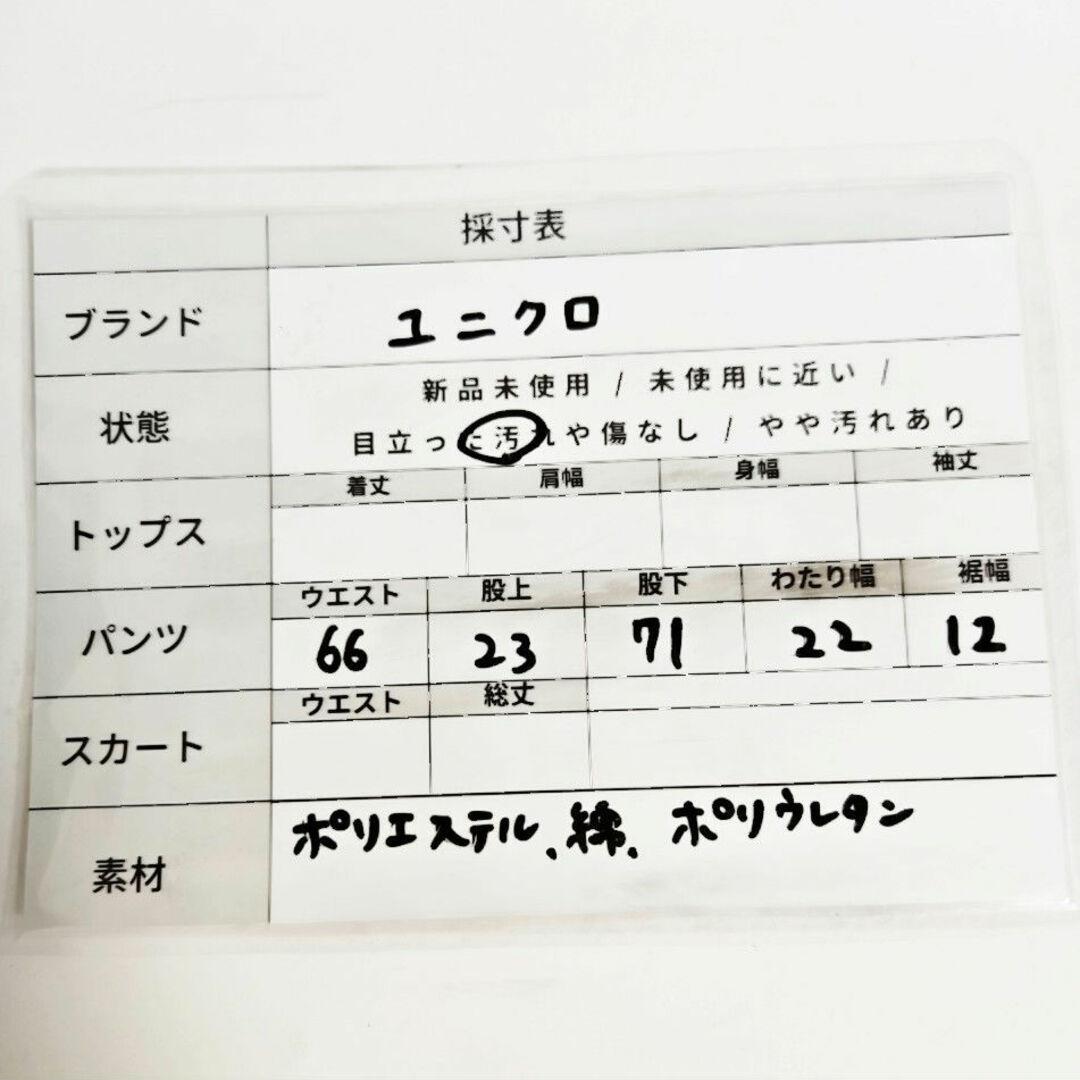 採寸表
ブランド ユニクロ
新品未使用 / 未使用に近い /
状態
目立った汚れや傷なし / やや汚れあり
着丈 肩幅 身幅 袖丈
トップス
ウエスト 股上 股下 わたり幅 裾幅
パンツ 66 23 71 22 12
ウエスト 総丈
スカート
素材 ポリエステル、綿、ポリウレタン